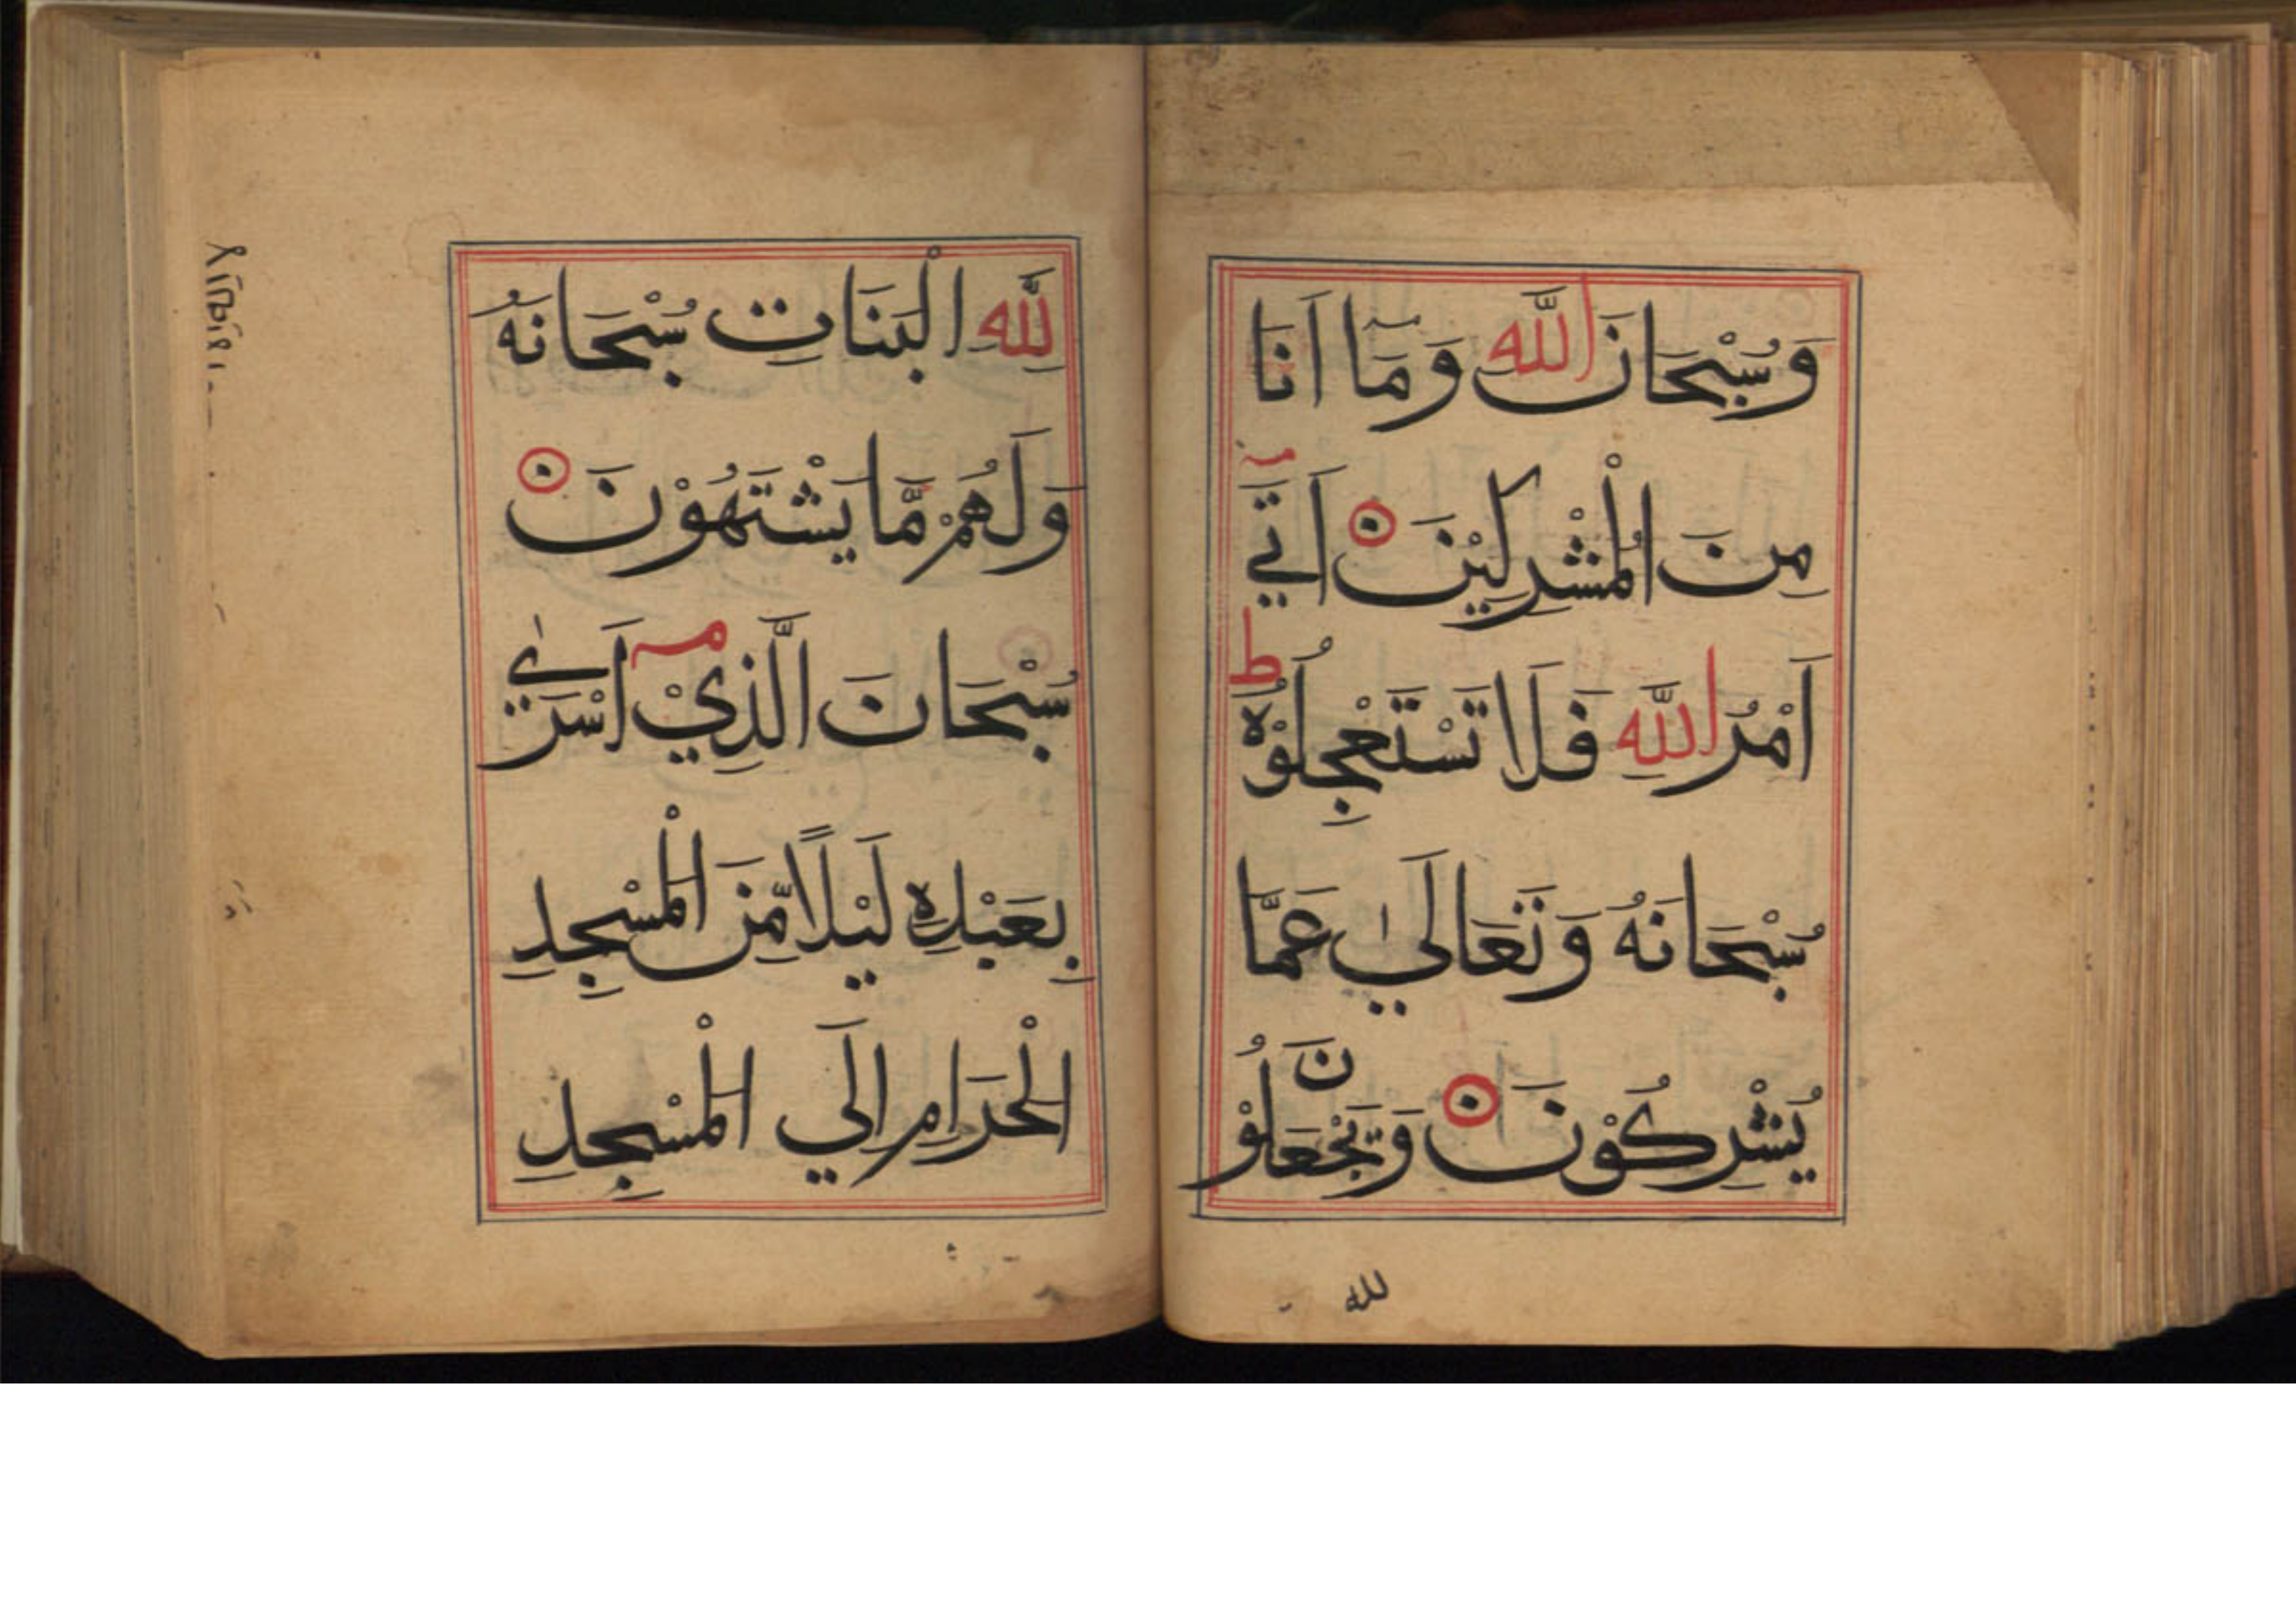 وَسُبْحَانَ اللَّهِ وَمَا اَنَا
مِنَ الْمُشْرِكِيْنَ اَتَي
اَمْرُ اللَّهِ فَلَا تَسْتَعْجِلُوْهُ ط
سُبْحَانَهُ وَتَعَالَيٰ عَمَّا
يُشْرِكُوْنَ وَيَجْعَلُوْنَ
لله
لِلَّهِ الْبَنَاتِ سُبْحَانَهُ
وَلَهُمْ مَّا يَشْتَهُوْنَ
سُبْحَانَ الَّذِيْ اَسْرَيٰ
بِعَبْدِهِ لَيْلًا مِّنَ الْمَسْجِدِ
الْحَرَامِ اِلَي الْمَسْجِدِ